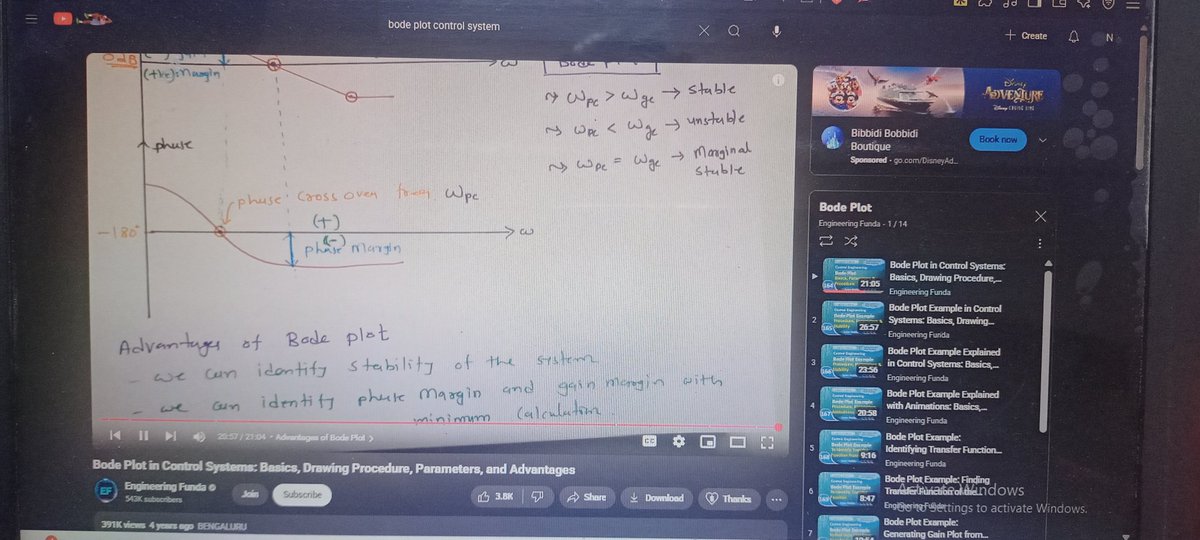 bode plot control system
+ Create
N
0dB
(+ve) Margin
ω
ωpc > ωgc → stable
ωpc < ωgc → unstable
ωpc = ωgc → Marginal
stable
phase
phase cross over freq. ωpc
-180°
(+)
(-)
phase Margin
ω
Advantages of Bode plot
- we can identify stability of the system
- we can identify phase Margin and gain margin with
minimum calculation
20:57 / 21:04 • Advantages of Bode Plot >
CC
Bode Plot in Control Systems: Basics, Drawing Procedure, Parameters, and Advantages
EF
Engineering Funda
543K subscribers
Join
Subscribe
3.8K
Share
Download
Thanks
391K views 4 years ago BENGALURU
Disney
ADVENTURE
Disney CRUISE LINE
Bibbidi Bobbidi
Boutique
Sponsored • go.com/DisneyAd...
Book now
Bode Plot
Engineering Funda - 1 / 14
21:05
Bode Plot in Control Systems:
Basics, Drawing Procedure,...
Engineering Funda
2
26:57
Bode Plot Example in Control
Systems: Basics, Drawing...
Engineering Funda
3
23:56
Bode Plot Example Explained
in Control Systems: Basics,...
Engineering Funda
4
20:58
Bode Plot Example Explained
with Animations: Basics,...
Engineering Funda
5
9:16
Bode Plot Example:
Identifying Transfer Function...
Engineering Funda
6
8:47
Bode Plot Example: Finding
Transfer Function of the...
Engineering Funda
Activate Windows
Go to Settings to activate Windows.
7
Bode Plot Example:
Generating Gain Plot from...